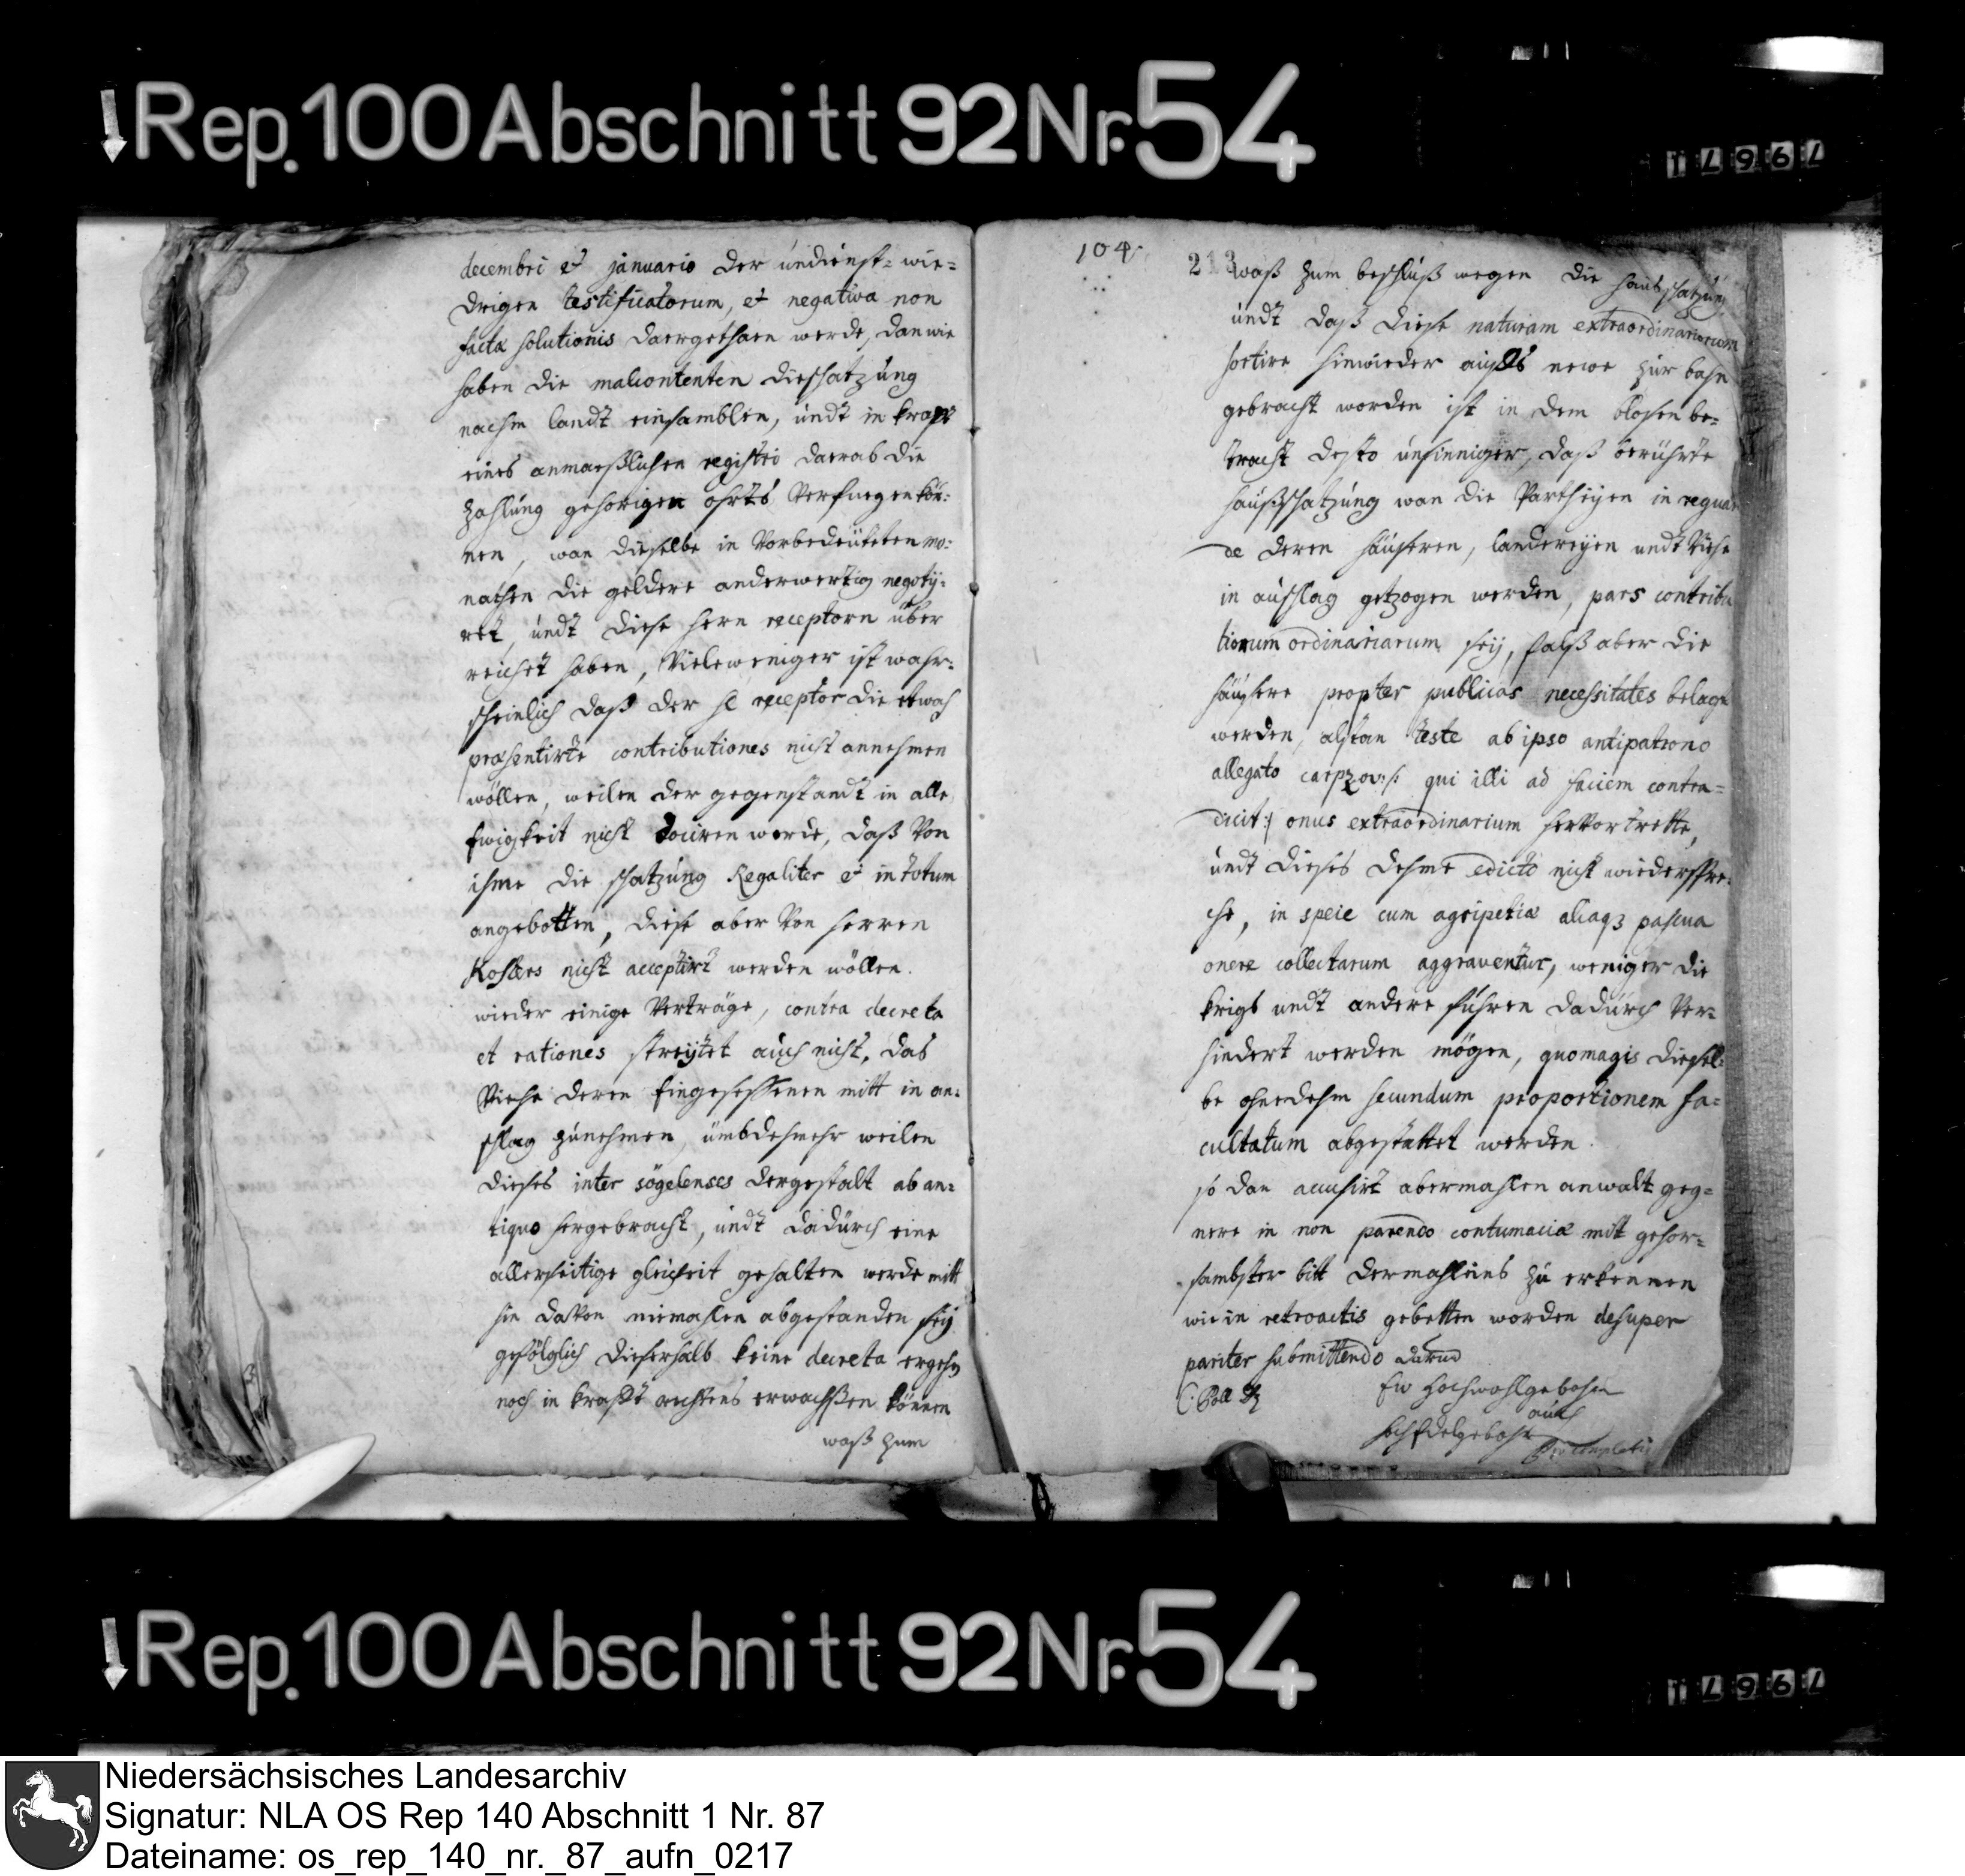 Rep. 100 Abschnitt 92 Nr. 54
decembri et januario der undienst- wie-
drigen testificatorum, et negativa non
factæ solutionis daergethaen werde, dan wie
haben die malcontenten die schatzung
nachm landt einsamblen, undt in krafft
eines anmaeßlichen registri daerab die
zahlung gehorigen ohrts verfuegen kön-
nen, wan dieselbe in vorbedeuteten mo-
nathen die geldere anderwertig negotÿ-
ret, undt diese hern receptorn über
reichet haben, vieleweniger ist wahr-
scheinlich daß der H receptor die etwaß
præsentirte contributiones nicht annehmen
wöllen, weilen der gegenstandt in alle
Ewigkeit nicht dociren werde, daß von
ihme die schatzung Regaliter et in totum
angebotten, diese aber von herren
Kohlers nicht acceptirt werden wöllen.
wieder einige Verträge, contra decreta
et rationes streÿtet auch nicht, das
Viehe deren Eingesessenen mitt in an-
schlag zunehmen, umbdemehr weilen
dieses inter sögelenses dergestalt ab an-
tiquo hergebracht, undt dadurch eine
allerseitige gleicheit gehalten werde mitt
hin davon niemahlen abgestanden seÿ
gefölglich dieserhalb keine decreta ergehen
noch in krafft rechtens erwachßen können
waß zum
104.
213
waß zum beschluß wegen die haußschatzung
undt daß diese naturam extraordinariorum
sortire hinwieder aufs newe zur bahn
gebracht worden ist in dem blosen be-
tracht desto unsinniger, daß berührte
haußschatzung wan die Partheÿen in regua-
de deren häuseren, landereÿen undt Viehe
in anschlag getzogen werden, pars contribu
tionum ordinariarum seÿ, falß aber die
häusere propter publicas necessitates belagt
werden, alßdan teste ab ipso antipatrono
allegato carpzov: /: qui illi ad faciem contra-
dicit :/ onus extraordinarium hervortrette,
undt dieses dehme edicto nicht wiederspre-
che, in specie cum agripetiæ aliaq3 pascua
onere collectarum aggraventur, weniger die
kriegs undt andere fuhren dadurch ver-
hindert werden mögen, quomagis diesel-
be ohnedehm secundum proportionem fa-
cultatum abgestattet werden.
so dan accusirt abermahlen anwalt geg-
nere in non parendo contumaciæ mit gehor-
sambster bitt dermahleins zu erkennen
wie in retroactis gebetten worden desuper
pariter submittendo
Ew Hochwohlgebohrn
auch
HochEdelgebohrn
Rep. 100 Abschnitt 92 Nr. 54
Niedersächsisches Landesarchiv
Signatur: NLA OS Rep 140 Abschnitt 1 Nr. 87
Dateiname: os_rep_140_nr._87_aufn_0217